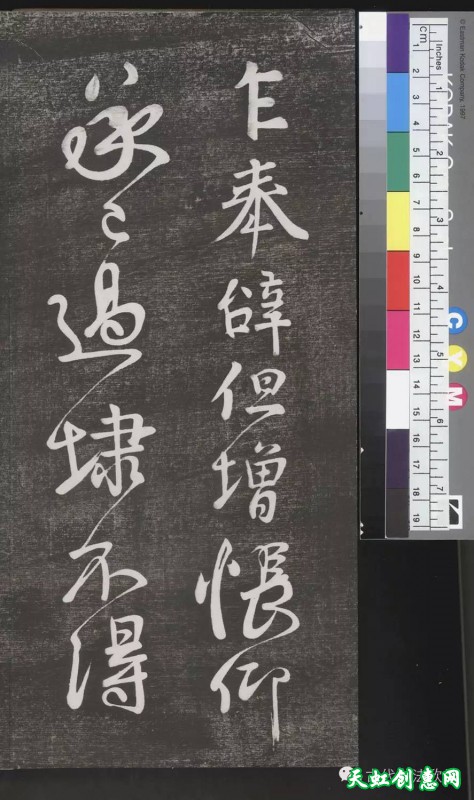 乍奉辝但增悵仰
過埭不得
© Eastman Kodak Company, 1997
cm 1 2 3 4 5 6 7 8 9 10 11 12 13 14 15 16 17 18 19
Inches 1 2 3 4 5 6 7
KODAK
C Y M
古代 法欣
天虹创意网